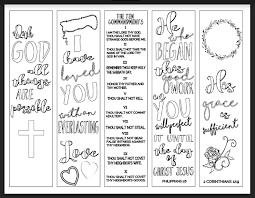 With
GOD
all
things
are
possible
I
have
loved
YOU
with an
EVERLASTING
Love
THE TEN
COMMANDMENTS
I AM THE LORD THY GOD.
THOU SHALT NOT HAVE
STRANGE GODS BEFORE ME.
II
THOU SHALT NOT TAKE
THE NAME OF THE LORD
THY GOD IN VAIN.
III
REMEMBER THOU KEEP HOLY
THE SABBATH DAY.
IV
HONOR THY FATHER
AND THY MOTHER.
V
THOU SHALT NOT KILL
VI
THOU SHALT NOT COMMIT
ADULTERY.
VII
THOU SHALT NOT STEAL.
VIII
THOU SHALT NOT BEAR
FALSE WITNESS AGAINST
THY NEIGHBOR.
IX
THOU SHALT NOT COVET THY
NEIGHBOR'S WIFE.
X
THOU SHALT NOT COVET
THY NEIGHBOR'S GOODS.
He
who
BEGAN
this
good
work
in
YOU
will perfect
IT UNTIL
the day
of
CHRIST JESUS
PHILIPPIANS 1:6
His
grace
is
sufficient
2 CORINTHIANS 12:9